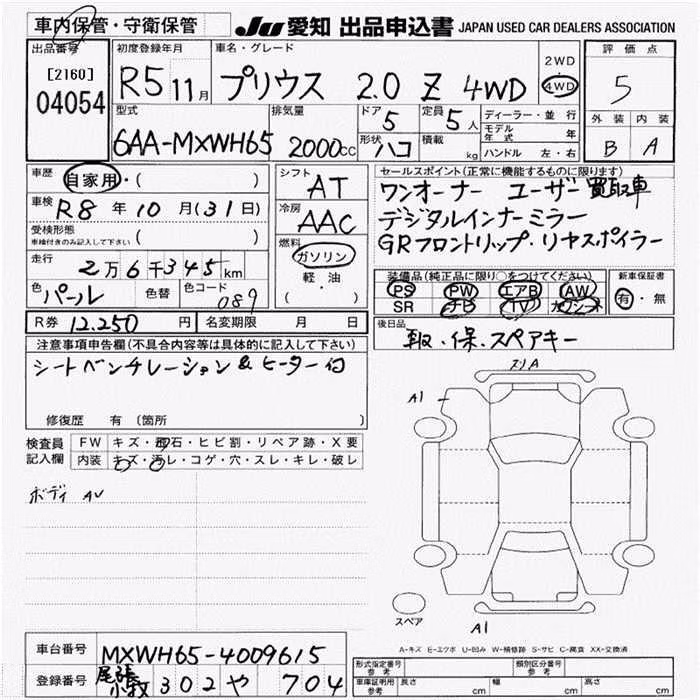 車内保管・守衛保管 JU 愛知 出品申込書 JAPAN USED CAR DEALERS ASSOCIATION
出品番号 初度登録年月 車名・グレード 2WD・4WD 評価点
[2160] 04054 R5 11月 プリウス 2.0 Z 4WD 5
型式 排気量 ドア 定員 ディーラー・並行 外装 内装
6AA-MXWH65 2000cc 5 5人 モデル年式 年 B A
形状 ハコ 積載 kg ハンドル 左・右
車歴 自家用・( ) シフト AT セールスポイント(正常に機能するものに限ります)
車検 R8年10月(31日) 冷房 AAC ワンオーナー ユーザー買取車
受検形態 ( ) デジタルインナーミラー
車検付きのみ記入して下さい 燃料 ガソリン GRフロントリップ・リヤスポイラー
走行 2万6千345km 軽・油 装備品(純正品に限り○をつけてください) 新車保証書
色 パール 色替 色コード 089 ( ) PS PW エアB AW 有・無
SR ナビ TV カワシート
R券 12,250円 名変期限 月 日 後日品
注意事項申告欄(不具合内容等は具体的に記入して下さい) 取・保・スペアキー
シートベンチレーション & ヒーター付
修復歴 有 (箇所 )
検査員記入欄 FW キズ・飛石・ヒビ割・リペア跡・X要
内装 キズ・汚レ・コゲ・穴・スレ・キレ・破レ
ボディ AU
スリA
A1
スペア
A1
A-キズ E-エクボ U-凹み W-補修跡 S-サビ C-腐食 XX-交換済
車台番号 MXWH65-4009615
登録番号 尾張小牧 302 や 704
形式指定番号 参考 類別区分番号 参考
車庫証明用 参考 長さ cm 幅 cm 高さ cm